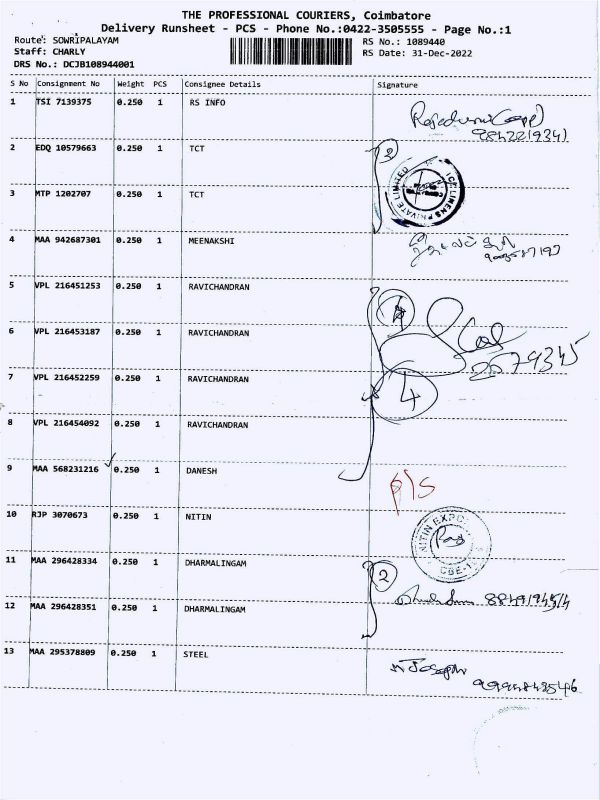 THE PROFESSIONAL COURIERS, Coimbatore
Delivery Runsheet - PCS - Phone No.:0422-3505555 - Page No.:1
Route: SOWRIPALAYAM
RS No.: 1089440
Staff: CHARLY
RS Date: 31-Dec-2022
DRS No.: DCJB108944001
S No Consignment No Weight PCS Consignee Details Signature
1 TSI 7139375 0.250 1 RS INFO
9842219341
2 EDQ 10579663 0.250 1 TCT 2
3 MTP 1202707 0.250 1 TCT
PRIVATE LIMITED
4 MAA 942687301 0.250 1 MEENAKSHI
5 VPL 216451253 0.250 1 RAVICHANDRAN
6 VPL 216453187 0.250 1 RAVICHANDRAN
7 VPL 216452259 0.250 1 RAVICHANDRAN
4
8 VPL 216454092 0.250 1 RAVICHANDRAN
9 MAA 568231216 0.250 1 DANESH
10 RJP 3070673 0.250 1 NITIN
NITIN EXPO
CBE-1
11 MAA 296428334 0.250 1 DHARMALINGAM 2
12 MAA 296428351 0.250 1 DHARMALINGAM
13 MAA 295378809 0.250 1 STEEL